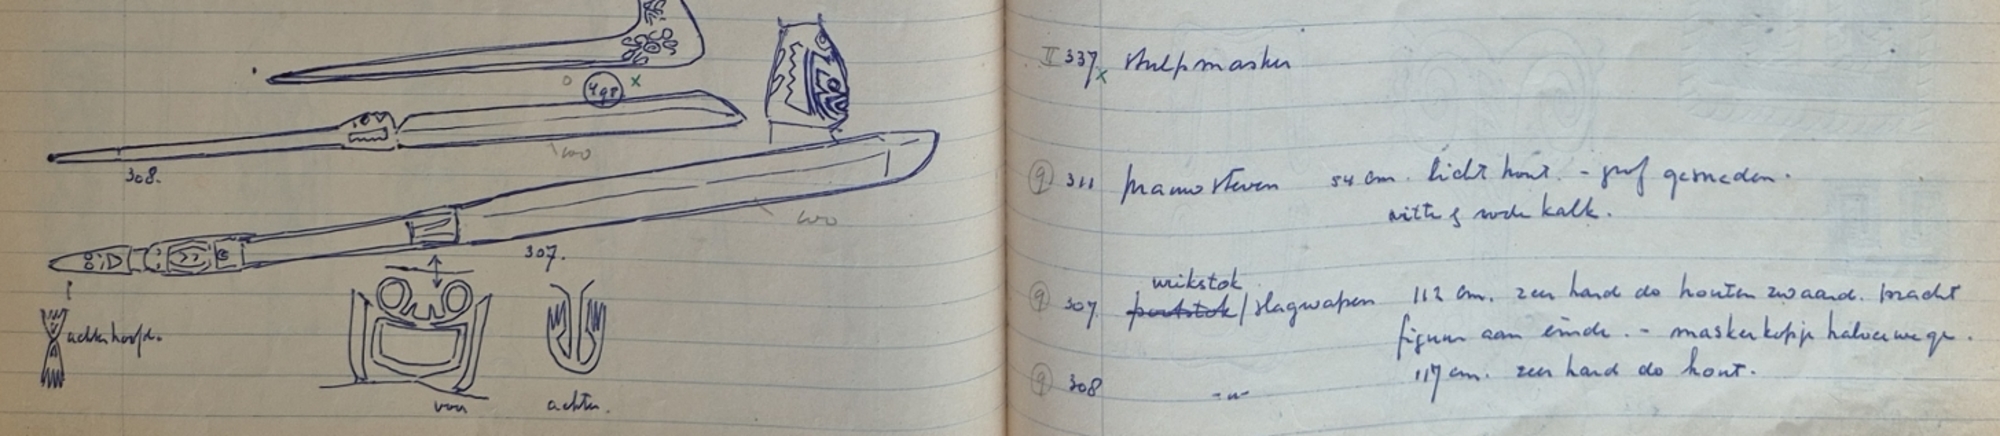 498 x
308.
307.
achterhoofd.
voor
achter.
II 337 x stulpmasker
9 311 prauwsteven 54 cm. licht hout. - grof gesneden.
witte & rode kalk.
wrikstok
9 307 /slagwapen 112 cm. zeer hard do houten zwaard. pracht
figuur aan einde. - maskerkopje halverwege.
9 308 -"- 117 cm. zeer hard do hout.